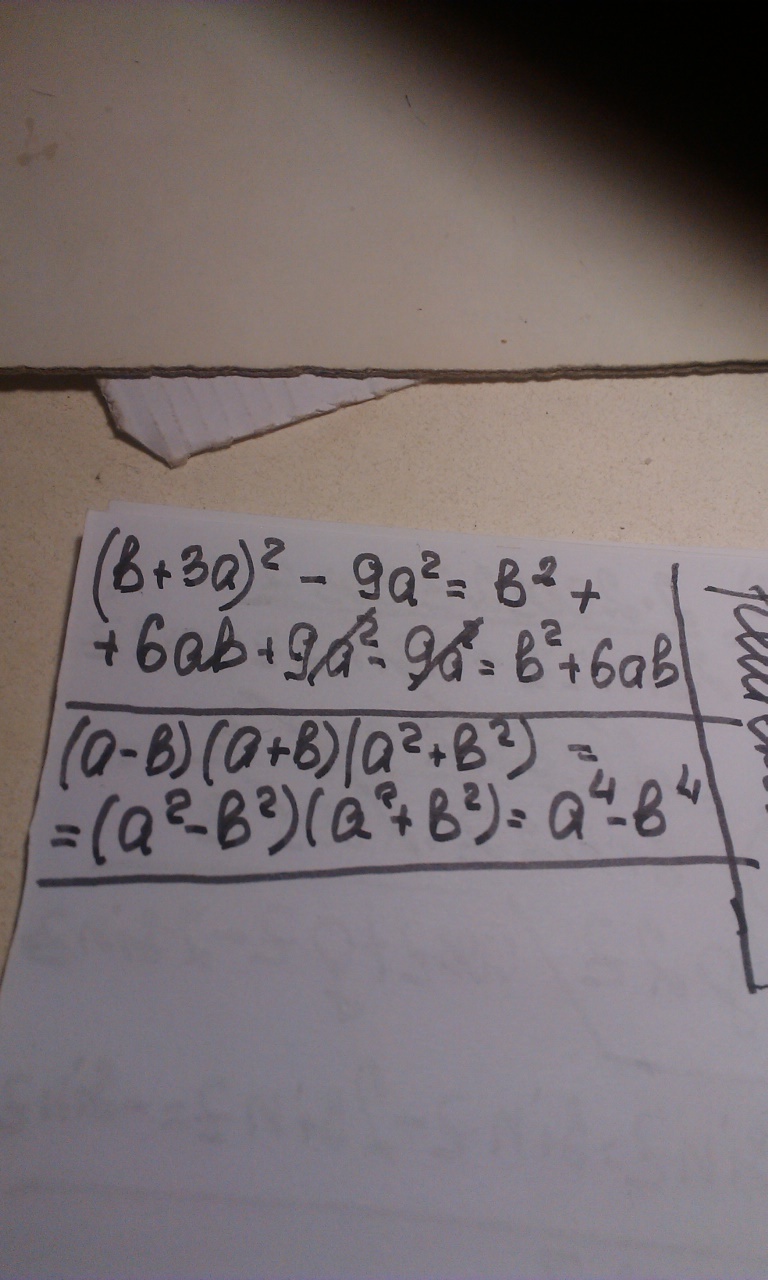 (b+3a)² - 9a² = b² +
+6ab+9a² - 9a² = b²+6ab
(a-b)(a+b)(a²+b²) =
=(a²-b²)(a²+b²)= a⁴-b⁴